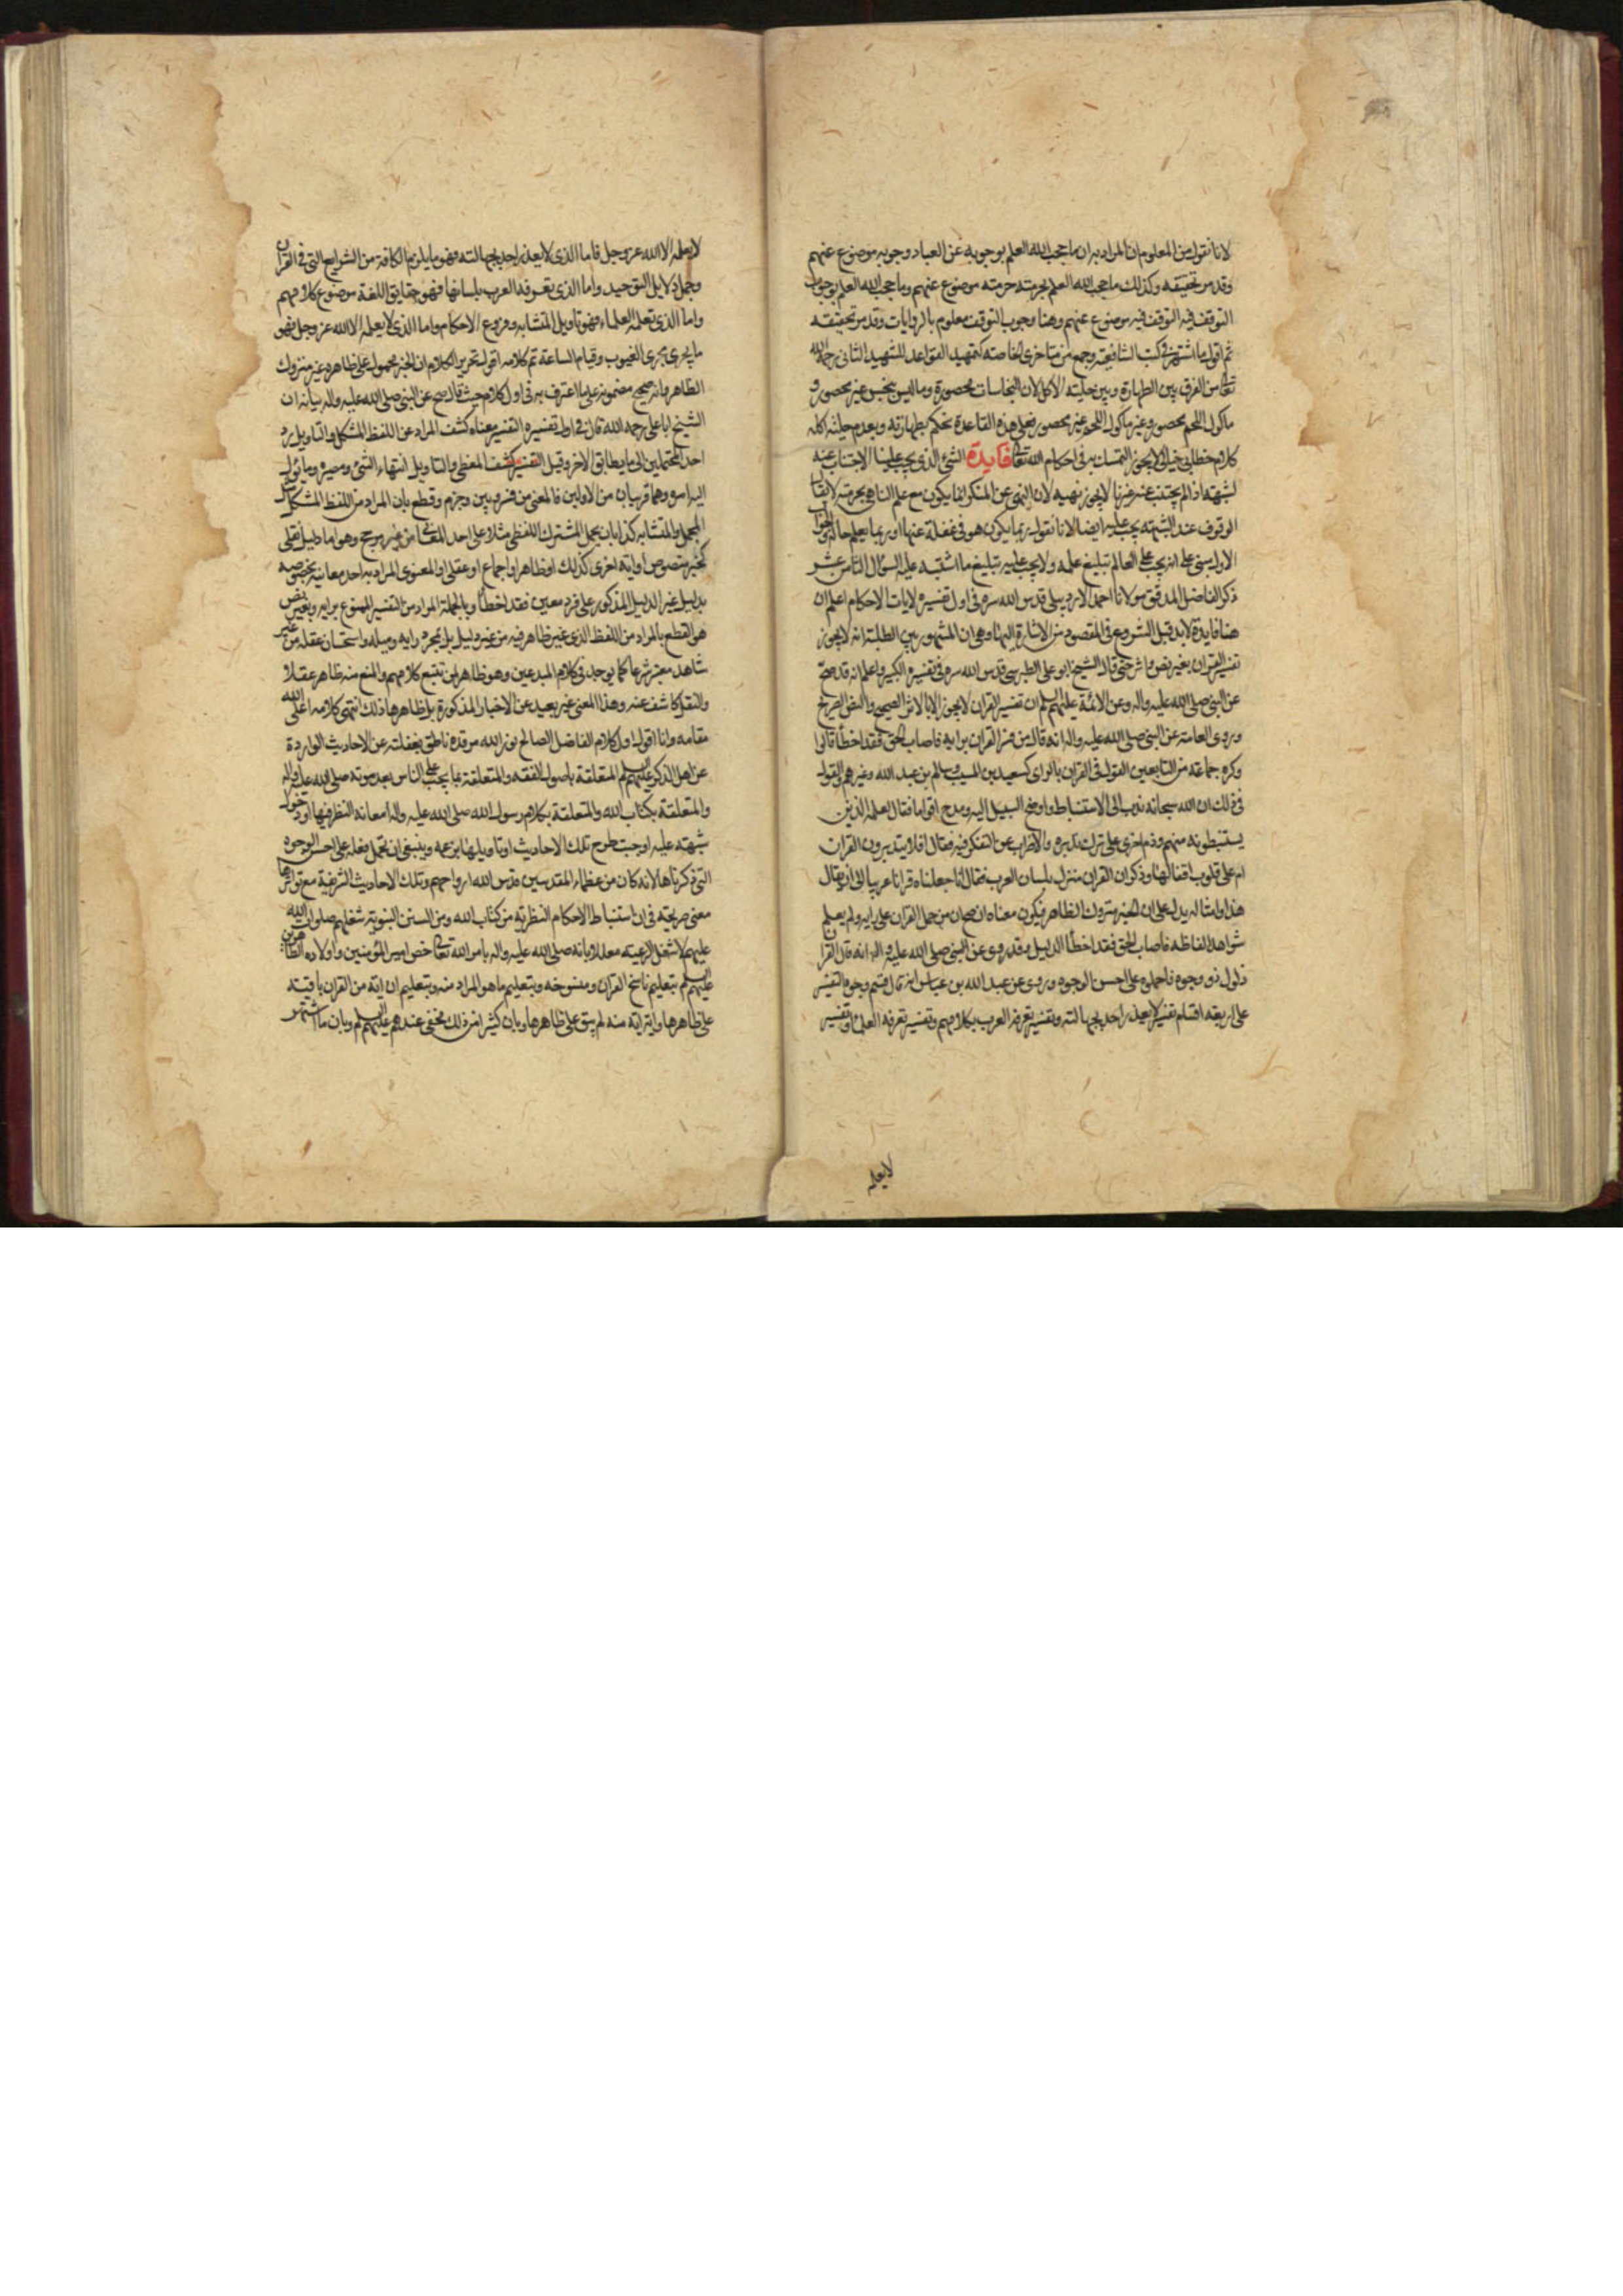 لانا نقول من المعلوم ان المراد به ان ما حجب الله العلم بوجوبه عن العباد وجوبه موضوع عنهم
وقد مر تحقيقه وكذلك ما حجب الله العلم بحرمته حرمته موضوع عنهم وما حجب الله العلم بوجوب
التوقف فيه التوقف فيه موضوع عنهم وهنا وجوب التوقف معلوم بالروايات وقد مر تحقيقه
ثم اقول ما اشتهر في كتب الشافعية وجمع من متاخرى الخاصة كتمهيد القواعد للشهيد الثانى رحمه الله
تعالى من الفرق بين الطهارة وبين حلية الاكل لان النجاسات محصورة وما ليس بنجس غير محصور و
ماكول اللحم محصور وغير ماكول اللحم غير محصور فعلى هذه القاعدة نحكم بطهارته وبعدم حلية اكله
كلام خطابى خيالى لا يجوز التمسك به فى احكام الله تعالى فايدة الشئ الذى يجب علينا الاجتناب عنه
لشبهة اذا لم يجتنب عنه غيرنا لا يجوز نهيه لان النهى عن المنكر انما يكون مع علم الناهى بحرمته لا يقال
الوقوف عند الشبهة يجب عليه ايضا لانا نقول ربما يكون هو فى غفلة عنها او ربما يعلم حاله والجواب
الاول مبنى على انه يجب على العالم تبليغ علمه ولا يجب عليه تبليغ ما اشتبه عليه السؤال الثامن عشر
ذكر الفاضل المدقق مولانا احمد الاردبيلى قدس الله سره فى اول تفسيره لايات الاحكام اعلم ان
هنا فايدة لابد قبل الشروع فى المقصود من الاشارة اليها وهى ان المشهور بين الطلبة انه لا يجوز
تفسير القران بغير نص واثر حتى قال الشيخ ابو على الطبرسى قدس الله سره فى تفسيره الكبير واعلم انه قد صح
عن النبى صلى الله عليه واله وعن الائمة عليهم السلم ان تفسير القران لا يجوز الا بالاثر الصحيح والنص الصريح
وروى العامة عن النبى صلى الله عليه واله انه قال من فسر القران برايه فاصاب الحق فقد اخطأ قالوا
وكره جماعة من التابعين القول فى القران بالراى كسعيد بن المسيب وسالم بن عبد الله وغيرهم والقول
فى ذلك ان الله سبحانه ندب الى الاستنباط واوضح السبيل اليه ومدح اقواما فقال لعلمه الذين
يستنبطونه منهم وذم اخرى على ترك تدبره والاضراب عن التفكر فيه فقال افلا يتدبرون القران
ام على قلوب اقفالها وذكر ان القران منزل بلسان العرب فقال انا جعلناه قرانا عربيا الى ان قال
هذا وامثاله يدل على ان الخبر متروك الظاهر فيكون معناه ان صح ان من حمل القران على رايه ولم يعلم
شواهد الفاظه فاصاب الحق فقد اخطأ الدليل وقد روى عن النبى صلى الله عليه واله انه قال القران
ذلول ذو وجوه فاحملوه على احسن الوجوه وروى عن عبد الله بن عباس انه قال قسم وجوه التفسير
على اربعة اقسام تفسير لا يعذر احد بجهالته وتفسير تعرفه العرب بكلامهم وتفسير تعرفه العلماء وتفسير
لا يعلمه
لا يعلمه الا الله عز وجل فاما الذى لا يعذر احد بجهالته فهو ما يلزم الكافة من الشرايع التى فى القران
وجمل دلايل التوحيد واما الذى تعرفه العرب بلسانها فهو حقايق اللغة موضوع كلامهم
واما الذى تعلمه العلماء فهو تاويل المتشابه وفروع الاحكام واما الذى لا يعلمه الا الله عز وجل فهو
ما يجرى مجرى الغيوب وقيام الساعة تم كلامه اقول تحرير الكلام ان الخبر محمول على ظاهره غير متروك
الظاهر وانه صحيح مضمونه على ما اعترف به فى اول كلامه حيث قال صح عن النبى صلى الله عليه واله بيانه ان
الشيخ ابا على رحمه الله قال فى اول تفسيره التفسير معناه كشف المراد عن اللفظ المشكل والتاويل رد
احد المحتملين الى ما يطابق الاخر وقيل التفسير كشف المغطى والتاويل انتهاء الشئ ومصيره وما يؤل
اليه امره وهما قريبان من الاولين فالمعنى من فسر وبين وجزم وقطع بان المراد من اللفظ المشكل مثل
المجمل والمتشابه كذا بان يحمل المشترك اللفظى مثلا على احد المعانى من غير مرجح وهو اما دليل نقلى
كخبر منصوص او اية اخرى كذلك او ظاهر او اجماع او عقلى او المعنوى المراد به احد معانيه بخصوصه
بدليل غير الدليل المذكور على فرد معين فقد اخطأ وبالجملة المراد من التفسير الممنوع برايه وبغير نص
هو القطع بالمراد من اللفظ الذى غير ظاهر فيه من غير دليل بل بمجرد رايه وميله واستحسان عقله من غير
شاهد معتبر شرعا كما يوجد فى كلام المبدعين وهو ظاهر لمن تتبع كلامهم والمنع منه ظاهر عقلا
والنقل كاشف عنه وهذا المعنى غير بعيد عن الاخبار المذكورة بل ظاهرها ذلك انتهى كلامه اعلى الله
مقامه وانا اقول اول كلام الفاضل الصالح نور الله مرقده ناطق بغفلته عن الاحاديث الواردة
عن اهل الذكر عليهم السلم المتعلقة باصول الفقه والمتعلقة بما يجب على الناس بعد موته صلى الله عليه واله
والمتعلقة بكتاب الله والمتعلقة بكلام رسول الله صلى الله عليه واله امعانه النظر فيها او دخول
شبهة عليه اوجبت طرح تلك الاحاديث او تاويلها بزعمه وينبغى ان نحمل فعله على احسن الوجوه
التى ذكرناها لانه كان من عظماء المقدسين قدس الله ارواحهم وتلك الاحاديث الشريفة مع تواترها
معنى صريحة فى ان استنباط الاحكام النظرية من كتاب الله ومن السنن النبوية شغلهم صلوات الله
عليهم لا شغل الرعية معللا بانه صلى الله عليه واله بامر الله تعالى خص امير المؤمنين واولاده الطاهرين
عليهم السلم بتعليم ناسخ القران ومنسوخه وبتعليم ما هو المراد منه وبتعليم ان اية من القران باقية
على ظاهرها واية اية منه لم يبق على ظاهرها وبان كثيرا من ذلك مخفى عندهم عليهم السلم وبان ما اشتهر